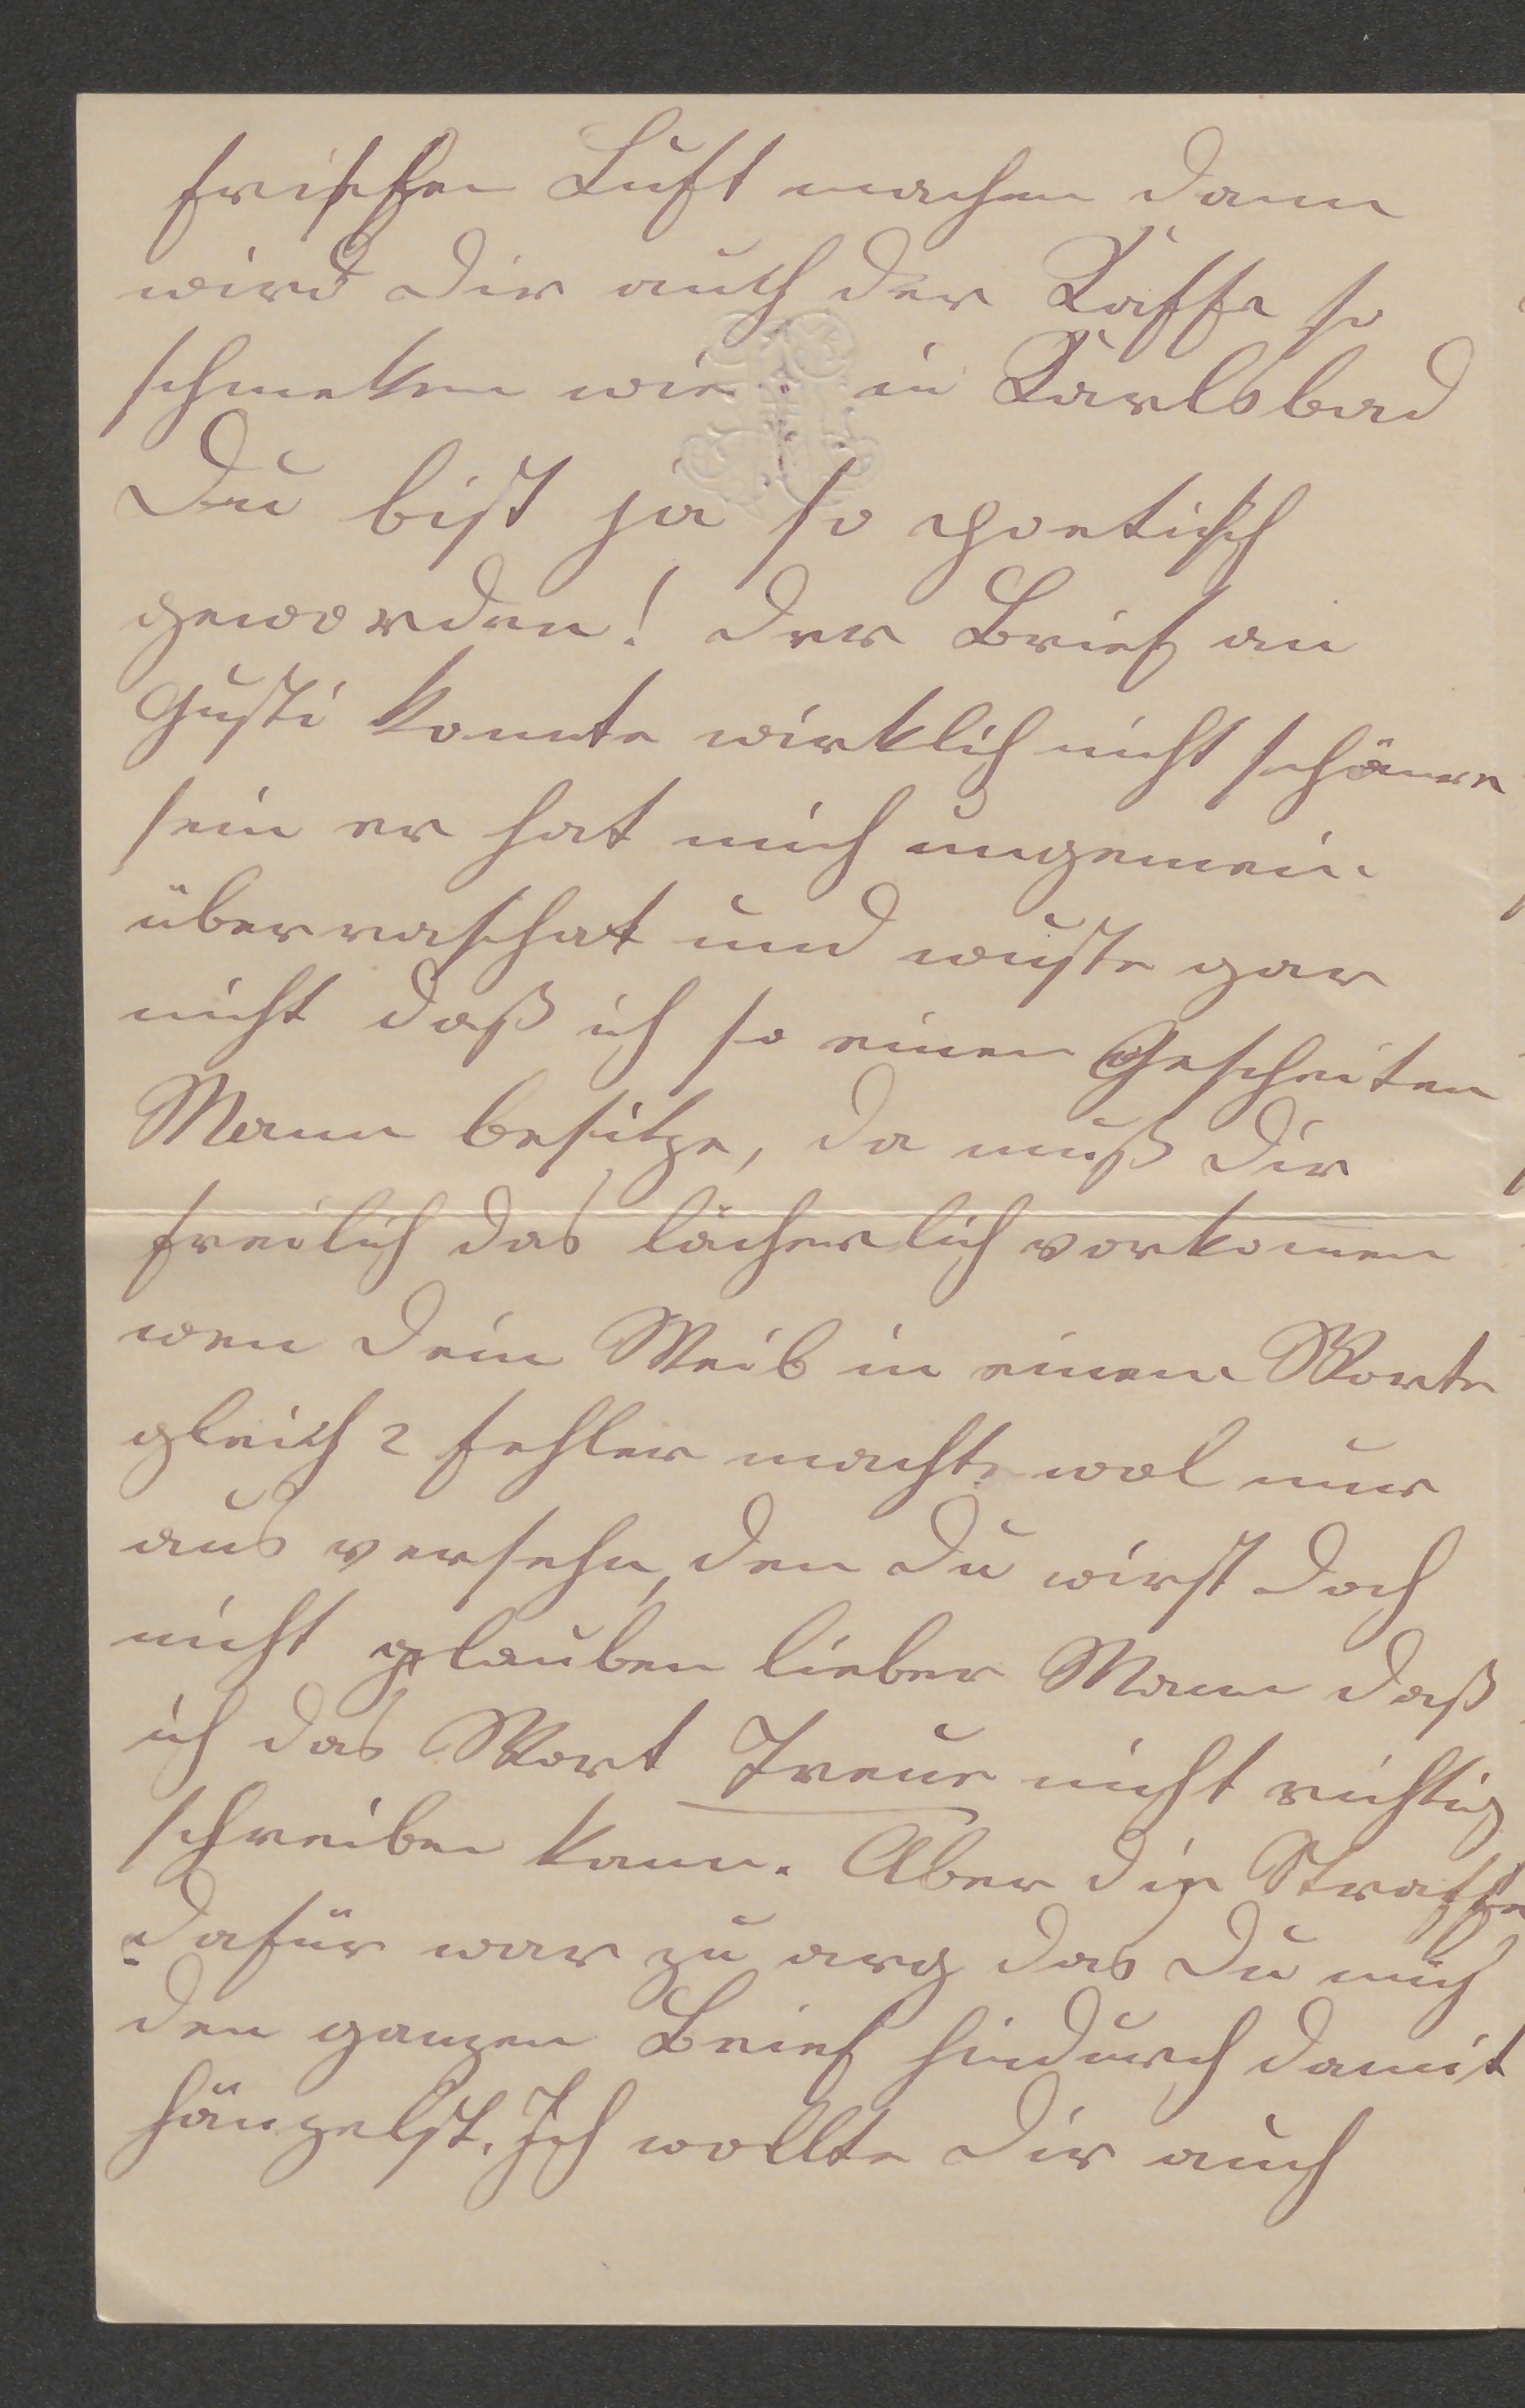 frischen Luft machen dann
wird dir auch der Kaffe so
schmeken wie in Karlsbad
Du bist ja so poetisch
geworden! der Brief an
Gusti konnte wirklich nicht schöner
sein er hat mich ungemein
überraschat und wuste gar
nicht daß ich so einen Gescheiten
Mann besitze, da muß dir
freilich das lächerlich vorkomen
wen dein Weib in einem Worte
gleich 2 Fehler machte wol nur
aus versehn, den du wirst doch
nicht glauben lieber Mann daß
ich das Wort Treue nicht richtig
schreiben kann. Aber die Straffe
dafür war zu arg das du mich
den ganzen Brief hindurch damit
hänzelst. Ich wollte dir auch